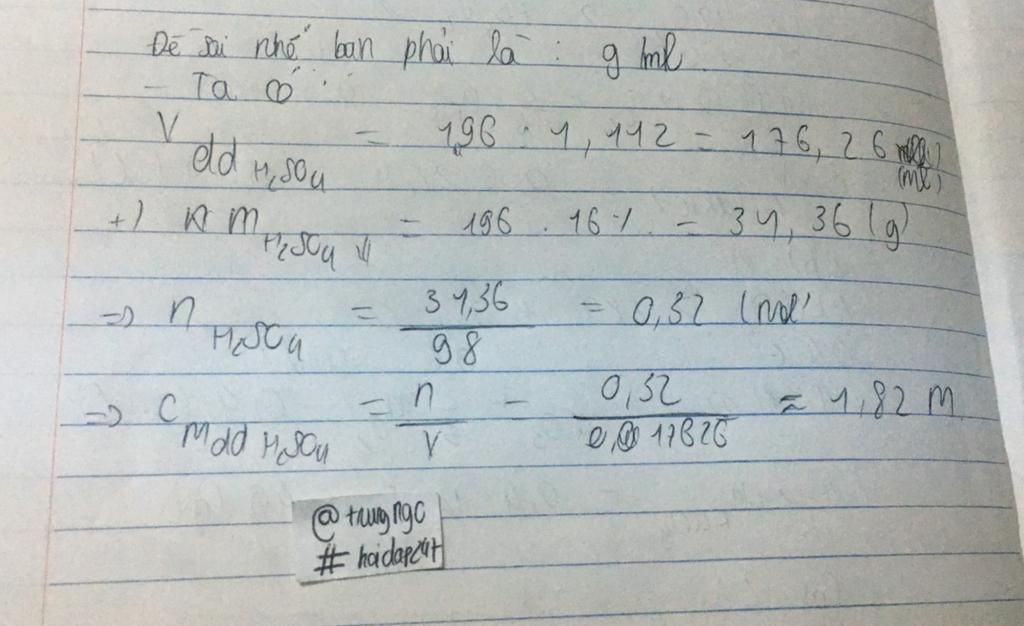 Đề sai nhé bạn phải là : g/ml
- Ta có :
V dd H₂SO₄ = 196 : 1,112 = 176,26 (ml)
+) m H₂SO₄ = 196 . 16% = 31,36 (g)
=> n H₂SO₄ = 31,36 / 98 = 0,32 (mol)
=> C M dd H₂SO₄ = n / V = 0,32 / 0,17626 ≈ 1,82 M
@trungngo
# hoidap24h